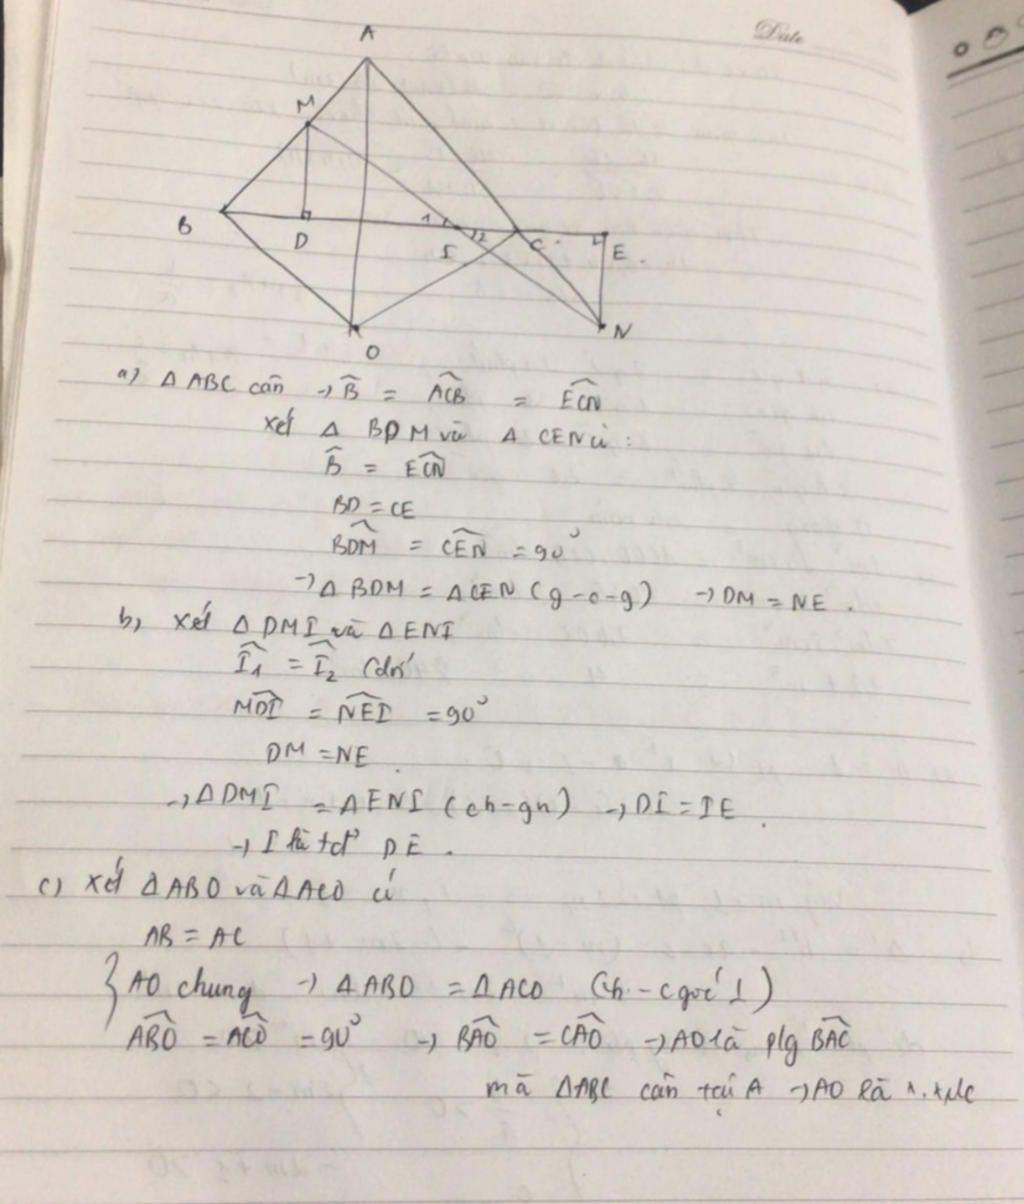 Date
A
M
B
D
1
I
2
C
E
N
O
a) Δ ABC cân → B̂ = ACB̂ = ECN̂
xét Δ BDM và Δ CEN có :
B̂ = ECN̂
BD = CE
BDM̂ = CEN̂ = 90°
→ Δ BDM = Δ CEN (g-c-g) → DM = NE .
b, xét Δ DMI và Δ ENI
Î1 = Î2 (đđ
MDÎ = NEÎ = 90°
DM = NE .
→ Δ DMI = Δ ENI (ch-gn) → DI = IE .
→ I là tđ DE .
c) xét Δ ABO và Δ ACO có
AB = AC
AO chung → Δ ABO = Δ ACO (ch - cgóc ⊥)
ABÔ = ACÔ = 90° → BAÔ = CAÔ → AO là p/g BAĈ
mà Δ ABC cân tại A → AO là t.trực